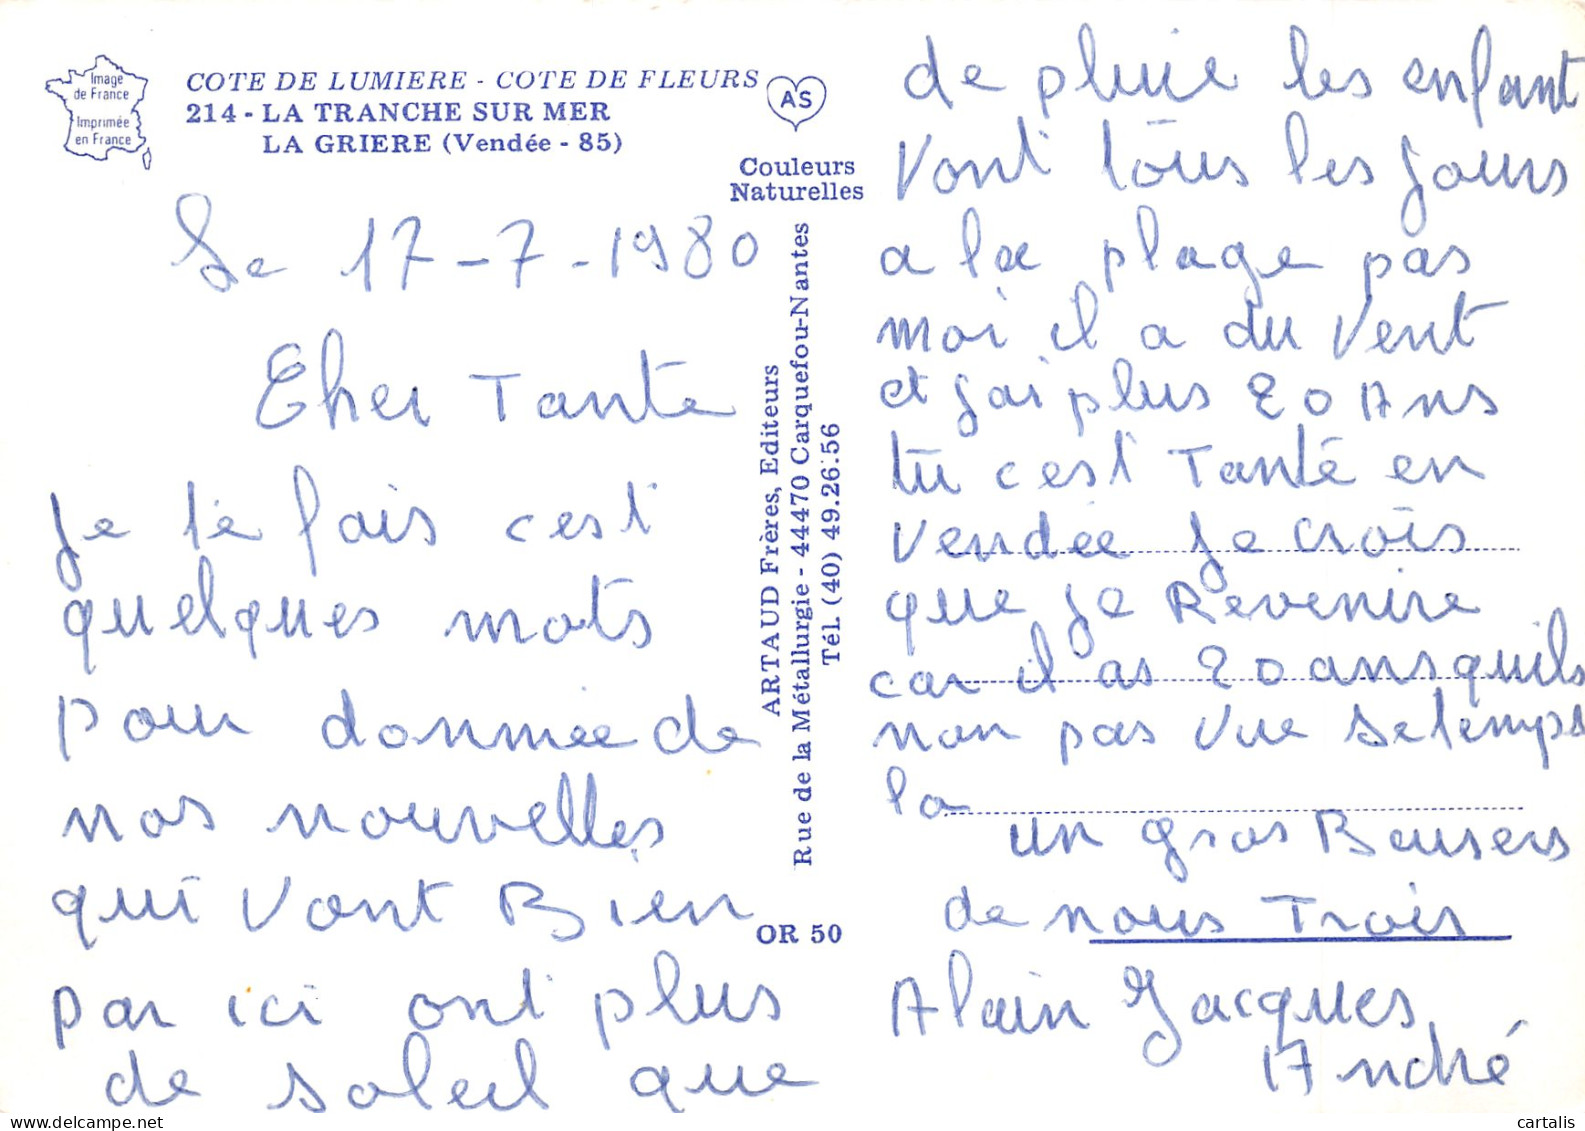 Image
de France
Imprimée
en France
COTE DE LUMIERE - COTE DE FLEURS
214 - LA TRANCHE SUR MER
LA GRIERE (Vendée - 85)
AS
Couleurs
Naturelles
Le 17-7-1980
Cher Tante
Je te fais cest
quelques mots
pour donmée de
nos nouvelles
qui vont Bien
par ici ont plus
de soleil que
ARTAUD Frères, Editeurs
Rue de la Métallurgie - 44470 Carquefou-Nantes
Tél. (40) 49.26.56
OR 50
de pluie les enfant
vont tous les jours
a la plage pas
moi il a du vent
et jai plus 20 Ans
tu cest Tante en
vendée je crois
que je Revenire
car il as 20 ans quils
non pas vue se temps
la
un gros Baisers
de nous Trois
Alain Jacques
André
cartalis